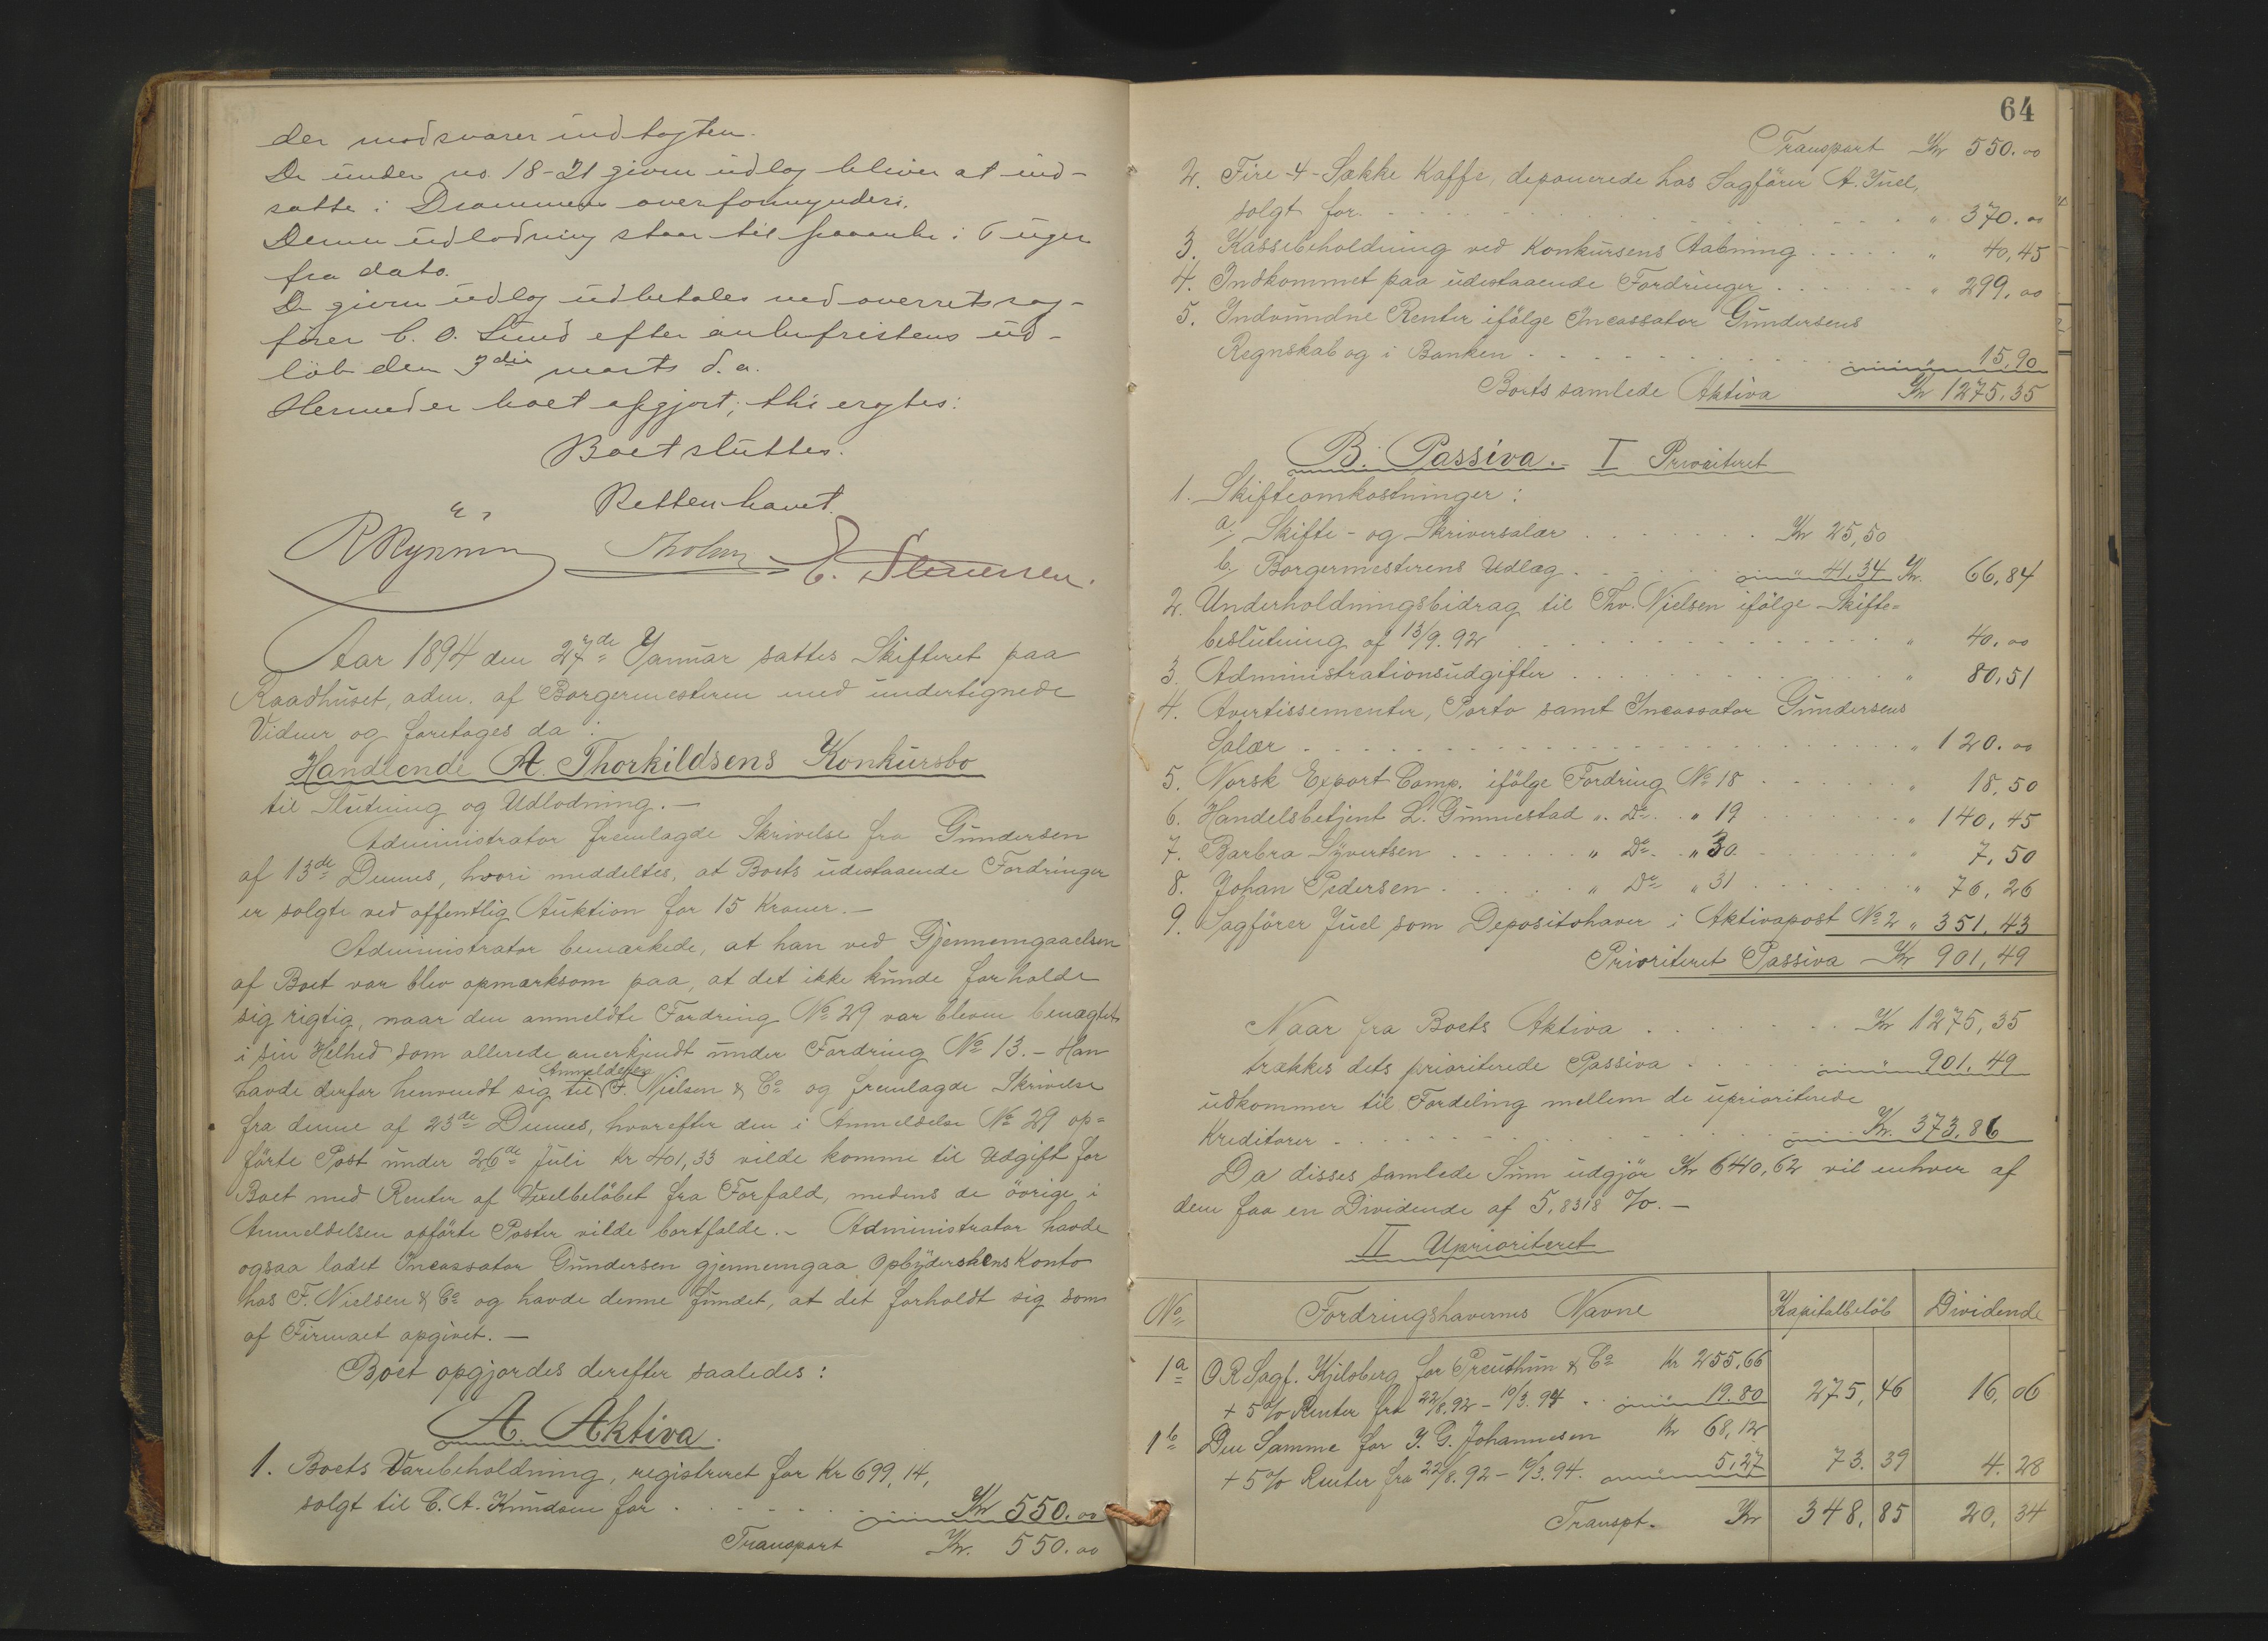 der modsvarer indtægten.
De under no. 18-21 givne udlæg bliver at ind-
satte i Drammens overformynderi.
Denne udlodning staar til paaanke i 6 uger
fra dato.
De givne udlæg udbetales ved overretssag-
fører C. O. Lund efter ankefristens ud-
løb den 3die marts d.a.
Hermed er boet opgjort; thi eragtes:
Boet sluttes.
Retten hævet.
Aar 1894 den 27de Januar sattes Skifteret paa
Raadhuset, adm. af Borgermesteren med undertegnede
Vidner og foretoges da:
Handlende A. Thorkildsens Konkursbo
til Slutning og Udlodning.—
Administrator fremlagde Skrivelse fra Gundersen
af 13de Dennes, hvori meddeltes, at Boets udestaaende Fordringer
er solgte ved offentlig Auktion for 15 Kroner.—
Administrator bemærkede, at han ved Gjennemgaaelsen
af Boet var blev opmærksom paa, at det ikke kunde forholde
sig rigtig, naar den anmeldte Fordring No 29 var bleven benægtet
i sin Helhed som allerede anerkjendt under Fordring No 13.- Han
havde derfor henvendt sig til Anmelderen F. Nielsen & Co og fremlagde Skrivelse
fra denne af 23de Dennes, hvorefter den i Anmeldelse No 29 op=
førte Post under 26de Juli Kr 401,33 vilde komme til Udgift for
Boet med Renter af Vexelbeløbet fra Forfald, medens de øvrige i
Anmeldelsen opførte Poster vilde bortfalde.- Administrator havde
ogsaa ladet Incassator Gundersen gjennemgaa Opbyderskens Konto
hos F. Nielsen & Co og havde denne fundet, at det forholdt sig som
af Firmaet opgivet.—
Boet opgjordes derefter saaledes:
A. Aktiva.
1. Boets Varebeholdning, registreret for Kr 699,14,
solgt til C. A. Knudsen for . . . . . Kr 550.00
Transport Kr. 550.00
64
Transport Kr 550.00
2. Fire -4- Sække Kaffe, deponerede hos Sagfører A. Juel,
solgt for. . . . . " 370.00
3. Kassebeholdning ved Konkursens Aabning . . . . . " 40,45
4. Indkommet paa udestaaende Fordringer . . . . . " 299,00
5. Indvundne Renter ifølge Incassator Gundersens
Regnskab og i Banken . . . . . " 15,90
Boets samlede Aktiva Kr 1275,35
B. Passiva. I Prioriteret
1. Skifteomkostninger:
a, Skifte- og Skriversalær . . . . . Kr 25,50
b, Borgermesterens Udlæg . . . . . " 41,34 Kr. 66,84
2. Underholdningsbidrag til Thv. Nielsen ifølge Skifte=
beslutning af 13/9.92 . . . . . " 40.00
3. Administrationsudgifter . . . . . " 80,51
4. Avertissementer, Porto samt Incassator Gundersens
Salær . . . . . " 120.00
5. Norsk Export Comp. ifølge Fordring No 18 . . . . . " 18,50
6. Handelsbetjent L. Gunnestad " Do " 19 . . . . . " 140,45
7. Barbra Syvertsen . . . . . " Do " 30 . . . . . " 7,50
8. Johan Pedersen . . . . . " Do " 31 . . . . . " 76,26
9. Sagfører Juel som Depositohaver i Aktivapost No 2 " 351,43
Prioriteret Passiva Kr 901,49
Naar fra Boets Aktiva . . . . . Kr 1275,35
trækkes dets prioriterede Passiva . . . . . " 901,49
udkommer til Fordeling mellem de uprioriterede
Kreditorer . . . . . Kr. 373,86
Da disses samlede Sum udgjør Kr 6410,62 vil enhver af
dem faa en Dividende af 5,8318 %.—
II Uprioriteret
No Fordringshavernes Navne Kapitalbeløb Dividende
1a O R Sagf. Kjelsberg for Preuthun & Co Kr 255,66
+ 5% Renter fra 22/8.92 - 10/3.94 . . " 19.80 275,46 16,06
1b Den Samme for J. G. Johannesen Kr 68,12
+ 5% Renter fra 22/8.92 - 10/3.94. " 5,27 73.39 4.28
Transpt. Kr 348,85 20,34